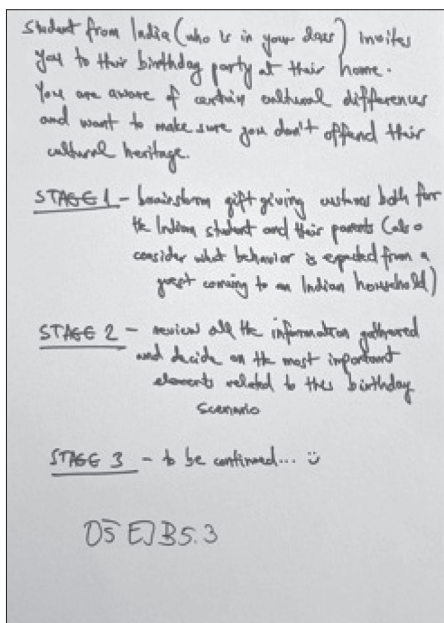 Student from India (who is in your class) invites
you to their birthday party at their home.
You are aware of certain cultural differences
and want to make sure you don't offend their
cultural heritage.
STAGE 1 - brainstorm gift giving customs both for
the Indian student and their parents (also
consider what behavior is expected from a
guest coming to an Indian household)
STAGE 2 - review all the information gathered
and decide on the most important
elements related to this birthday
scenario
STAGE 3 - to be continued... ü